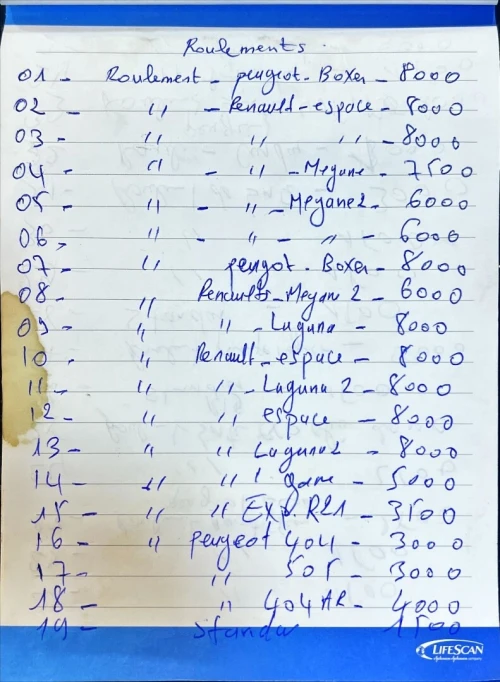 Roulements.
01 - Roulement - peugeot. Boxer - 8000
02 - " - Renault - espace - 8000
03 - " " " - 8000
04 - " - " - Megane - 7500
05 - " - " - Megane 2 - 6000
06 - " - " - " - 6000
07 - " peugot. Boxer - 8000
08 - " Renault - Megan 2 - 6000
09 - " " - Laguna - 8000
10 - " Renault - espace - 8000
11 - " " - Laguna 2 - 8000
12 - " " espace - 8000
13 - " " Laguna 2 - 8000
14 - " " game - 5000
15 - " " Exp. R21 - 3500
16 - " peugeot 404 - 3000
17 - " 505 - 3000
18 - " 404 AR - 4000
19 - Standar 1500
LIFESCAN